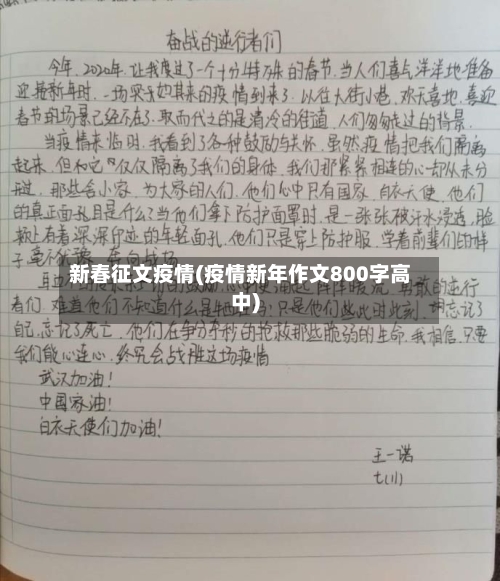 奋战的逆行者们
今年，2020年，让我度过了一个十分特殊的春节，当人们喜气洋洋地准备
迎接新年时，一场突如其来的疫情到来了，以往大街小巷，欢天喜地，喜迎
春节的场景已经不在了，取而代之的是清冷的街道，人们匆匆走过的背景.
当疫情来临时，我看到了各种鼓励与关怀，虽然疫情把我们隔离
起来，但和它"仅仅隔离了我们的身体，我们那紧紧相连的心却从未分
开过，那些舍小家，为大家的人们，他们心中只有国家，白衣天使，他们
的真正面孔目是什么？当他们拿下防护面罩时，是一张张被汗水浸透，脸
颊上有着深深印迹的年轻面孔，他们只是穿上防护服，学着前辈们的样
子
新春征文疫情(疫情新年作文800字高
中)
勇敢的逆行
者们，难道他们不知道什么是牺牲吗？只是他们此时此刻，忘记了
自己，忘记了死亡，他们在争分夺秒的抢救那些脆弱的生命，我相信，只要
我们能心连心，终究会战胜这场疫情
武汉加油！
中国加油！
白衣天使们加油！
王一诺
七(1)